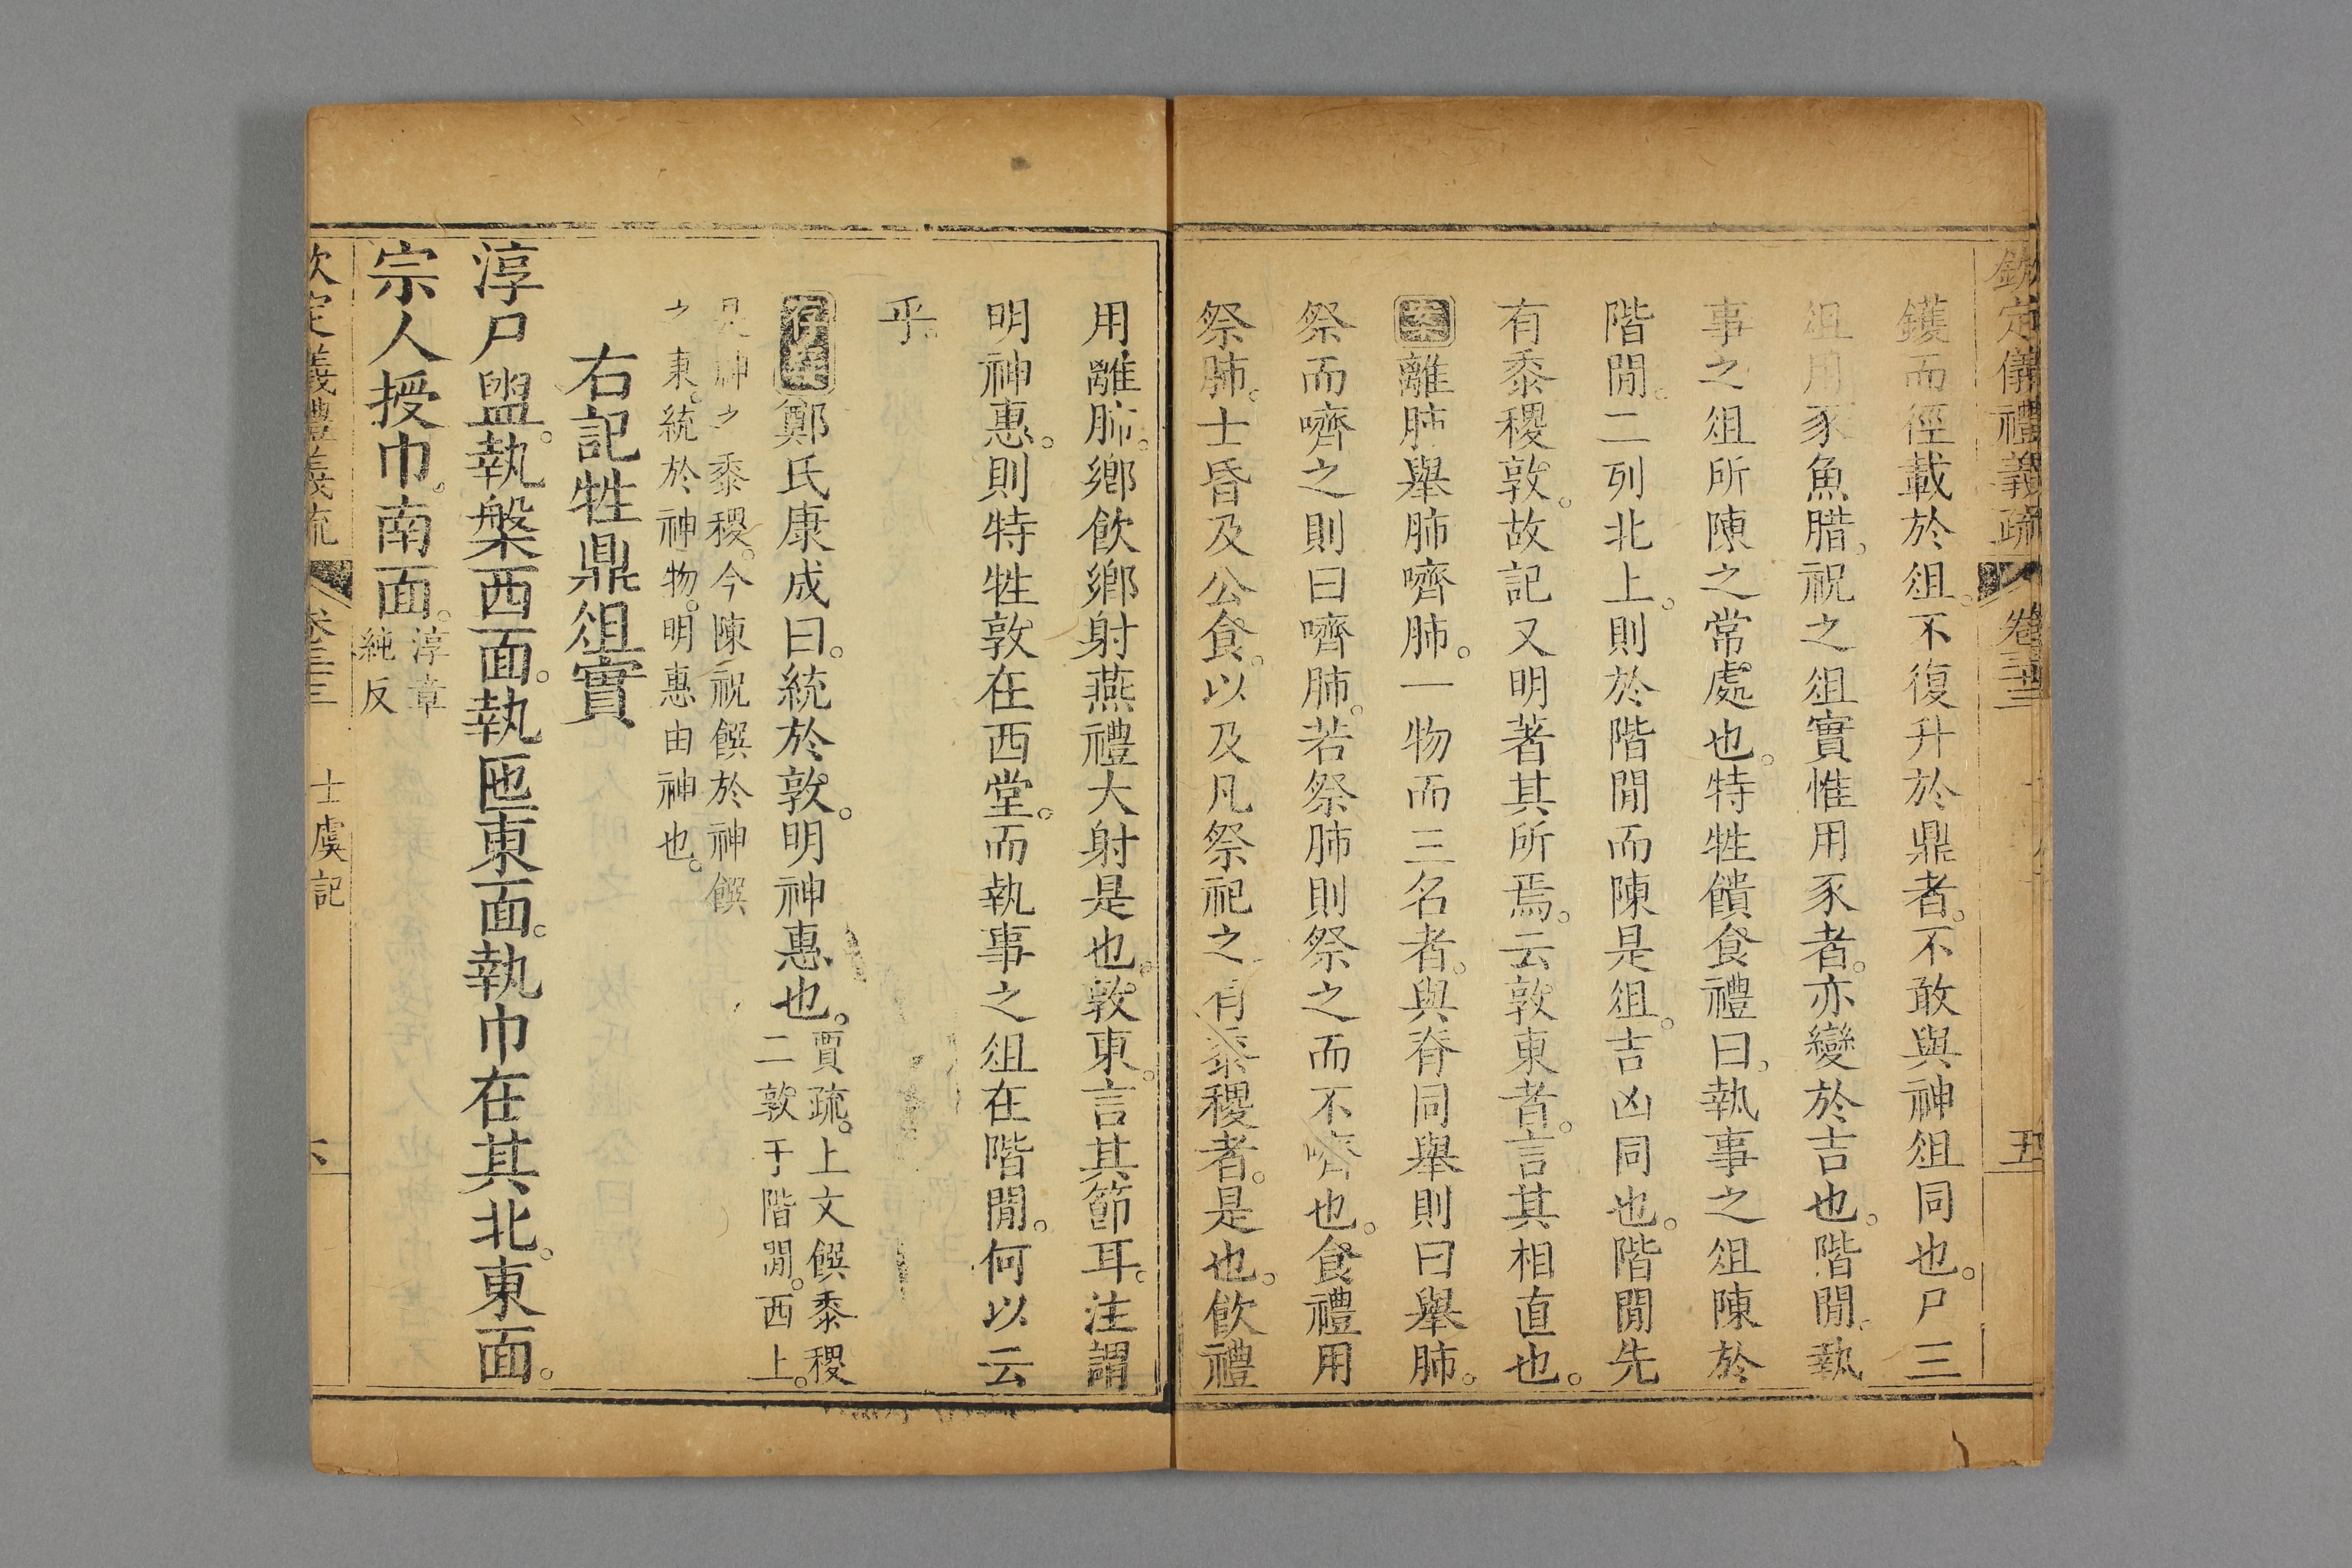 欽定儀禮義疏 卷三十三 五
鑊而徑載於俎。不復升於鼎者。不敢與神俎同也。尸三
俎用豕魚腊。祝之俎實惟用豕者。亦變於吉也。階閒。執
事之俎所陳之常處也。特牲饋食禮曰。執事之俎陳於
階閒。二列北上。則於階閒而陳是俎。吉凶同也。階閒先
有黍稷敦。故記又明著其所焉。云敦東者。言其相直也。
案離肺舉肺嚌肺。一物而三名者。與脊同舉則曰舉肺。
祭而嚌之則曰嚌肺。若祭肺則祭之而不嚌也。食禮用
祭肺。士昏及公食。以及凡祭祀之有黍稷者。是也。飲禮
用離肺。鄉飲鄉射燕禮大射是也。敦東。言其節耳。注謂
明神惠。則特牲敦在西堂。而執事之俎在階閒。何以云
乎。
鄭氏康成曰。統於敦。明神惠也。賈疏。上文饌黍稷
二敦于階閒。西上。
是神之黍稷。今陳祝饌於神饌
之東。統於神物。明惠由神也。
右記牲鼎俎實
淳尸盥。執槃西面。執匜東面。執巾在其北。東面。
宗人授巾。南面。淳章
純反
欽定儀禮義疏 卷三十三 士虞記 六